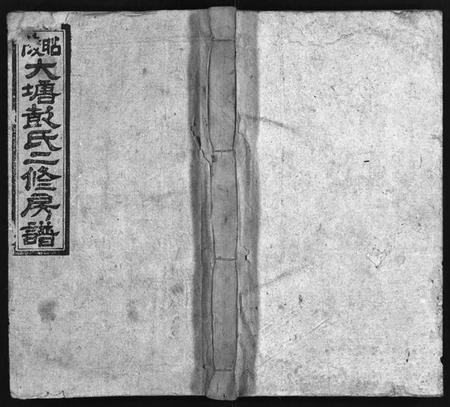 昭陵
大塘彭氏二修房譜